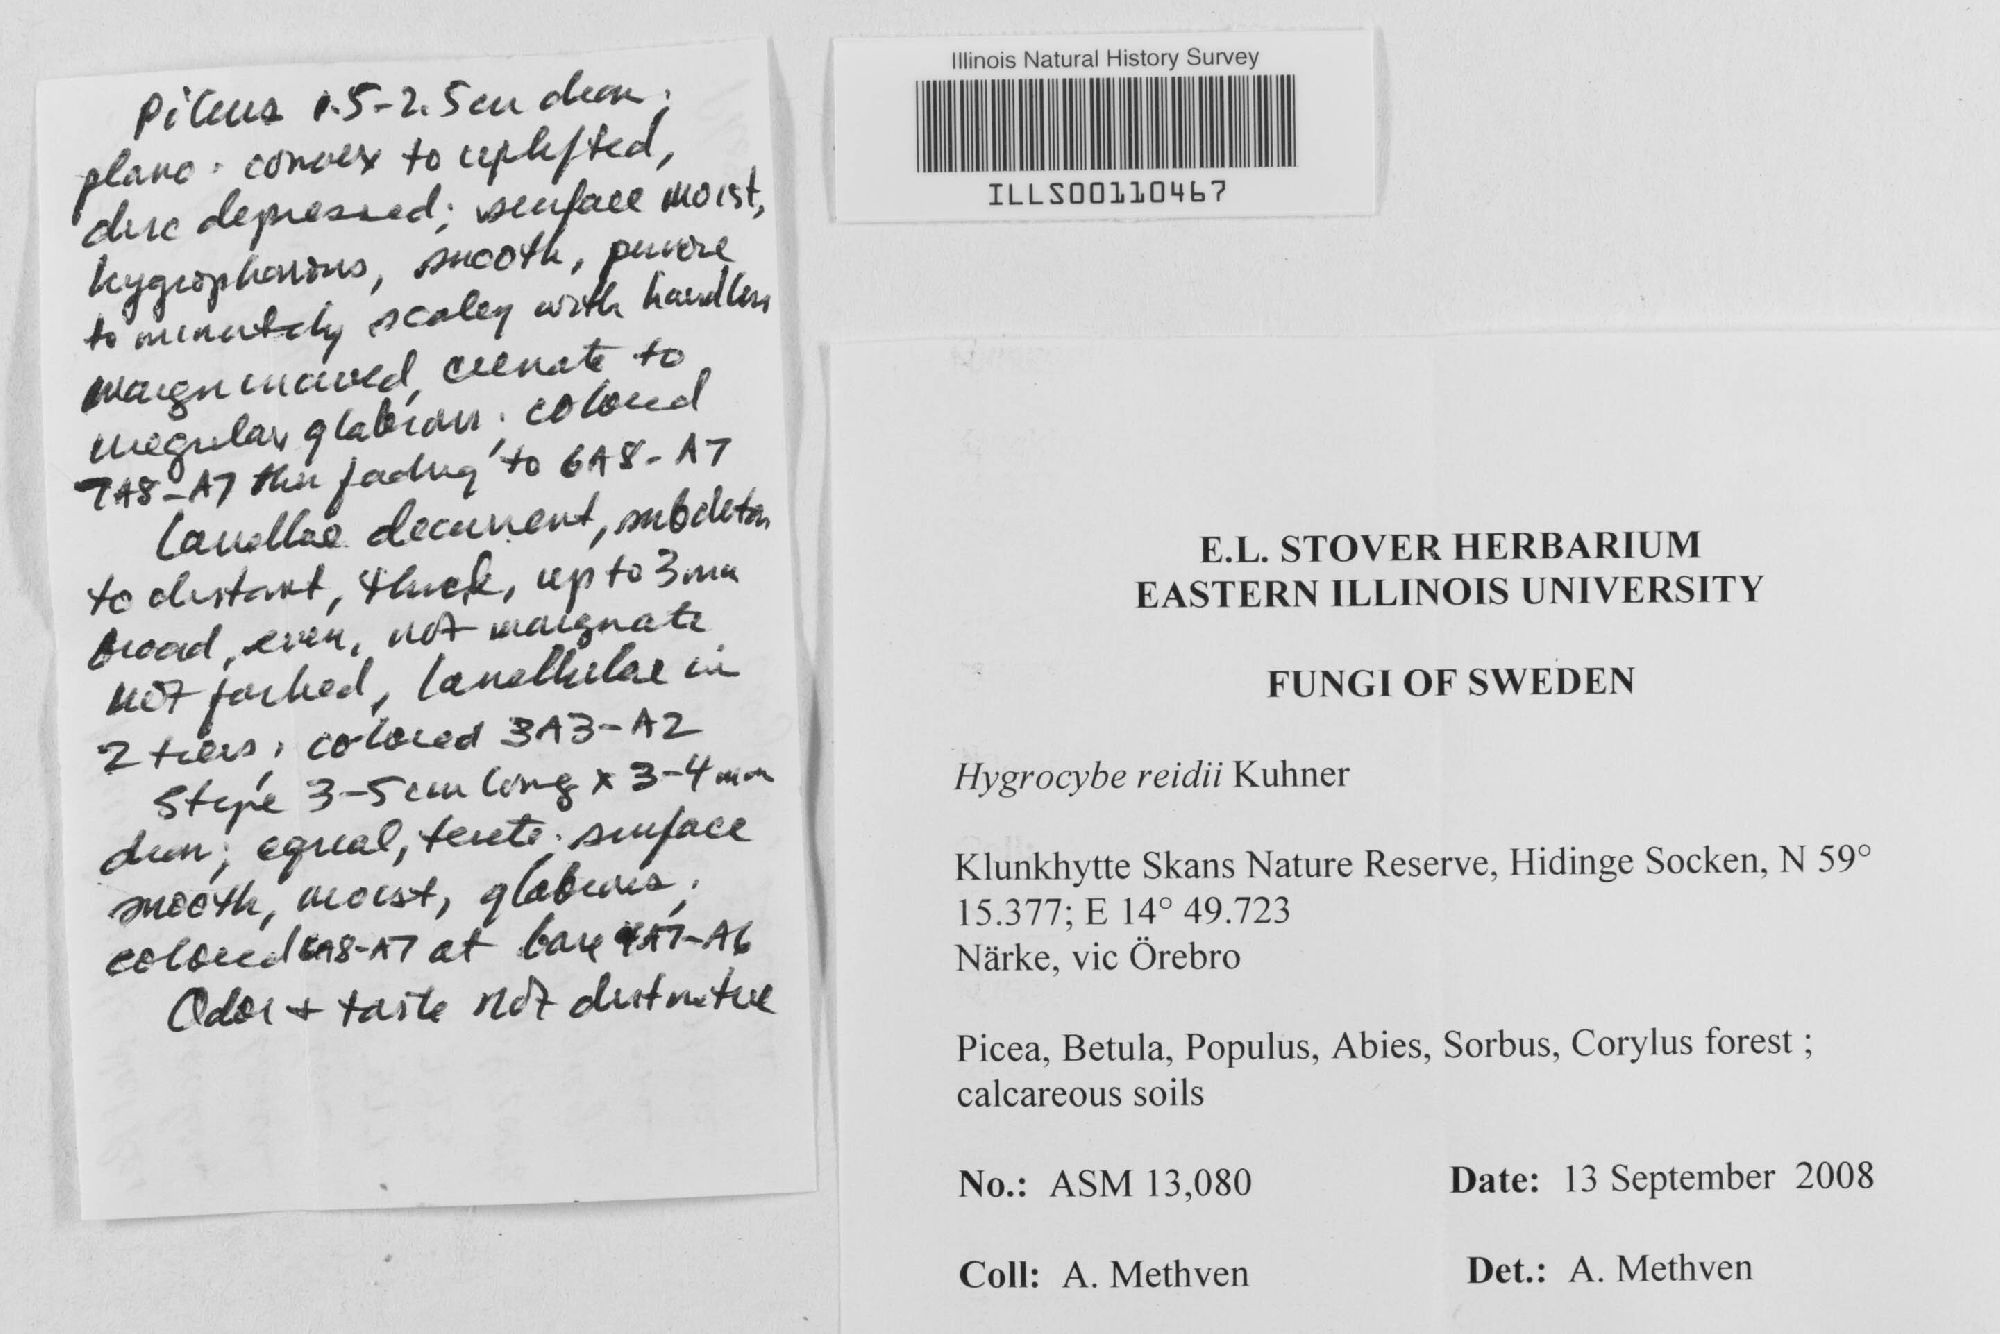 Pileus 1.5-2.5 cm diam;
plano-convex to uplifted,
disc depressed; surface moist,
hygrophanous, smooth,
to minutely scaley with
margin incurved, crenate to
irregular, glabrous; colored
7A8-A7 then fading to 6A8-A7
Lamellae decurrent, subdistan
to distant, thick, up to 3mm
broad, even, not marginate
not forked, lamellulae in
2 tiers; colored 3A3-A2
Stipe 3-5cm long x 3-4mm
diam; equal, terete; surface
smooth, moist, glabrous;
colored 6A8-A7 at base 4A7-A6
Odor + taste not distinctive
Illinois Natural History Survey
ILLS00110467
E.L. STOVER HERBARIUM
EASTERN ILLINOIS UNIVERSITY
FUNGI OF SWEDEN
Hygrocybe reidii Kuhner
Klunkhytte Skans Nature Reserve, Hidinge Socken, N 59°
15.377; E 14° 49.723
Närke, vic Örebro
Picea, Betula, Populus, Abies, Sorbus, Corylus forest ;
calcareous soils
No.: ASM 13,080 Date: 13 September 2008
Coll: A. Methven Det.: A. Methven